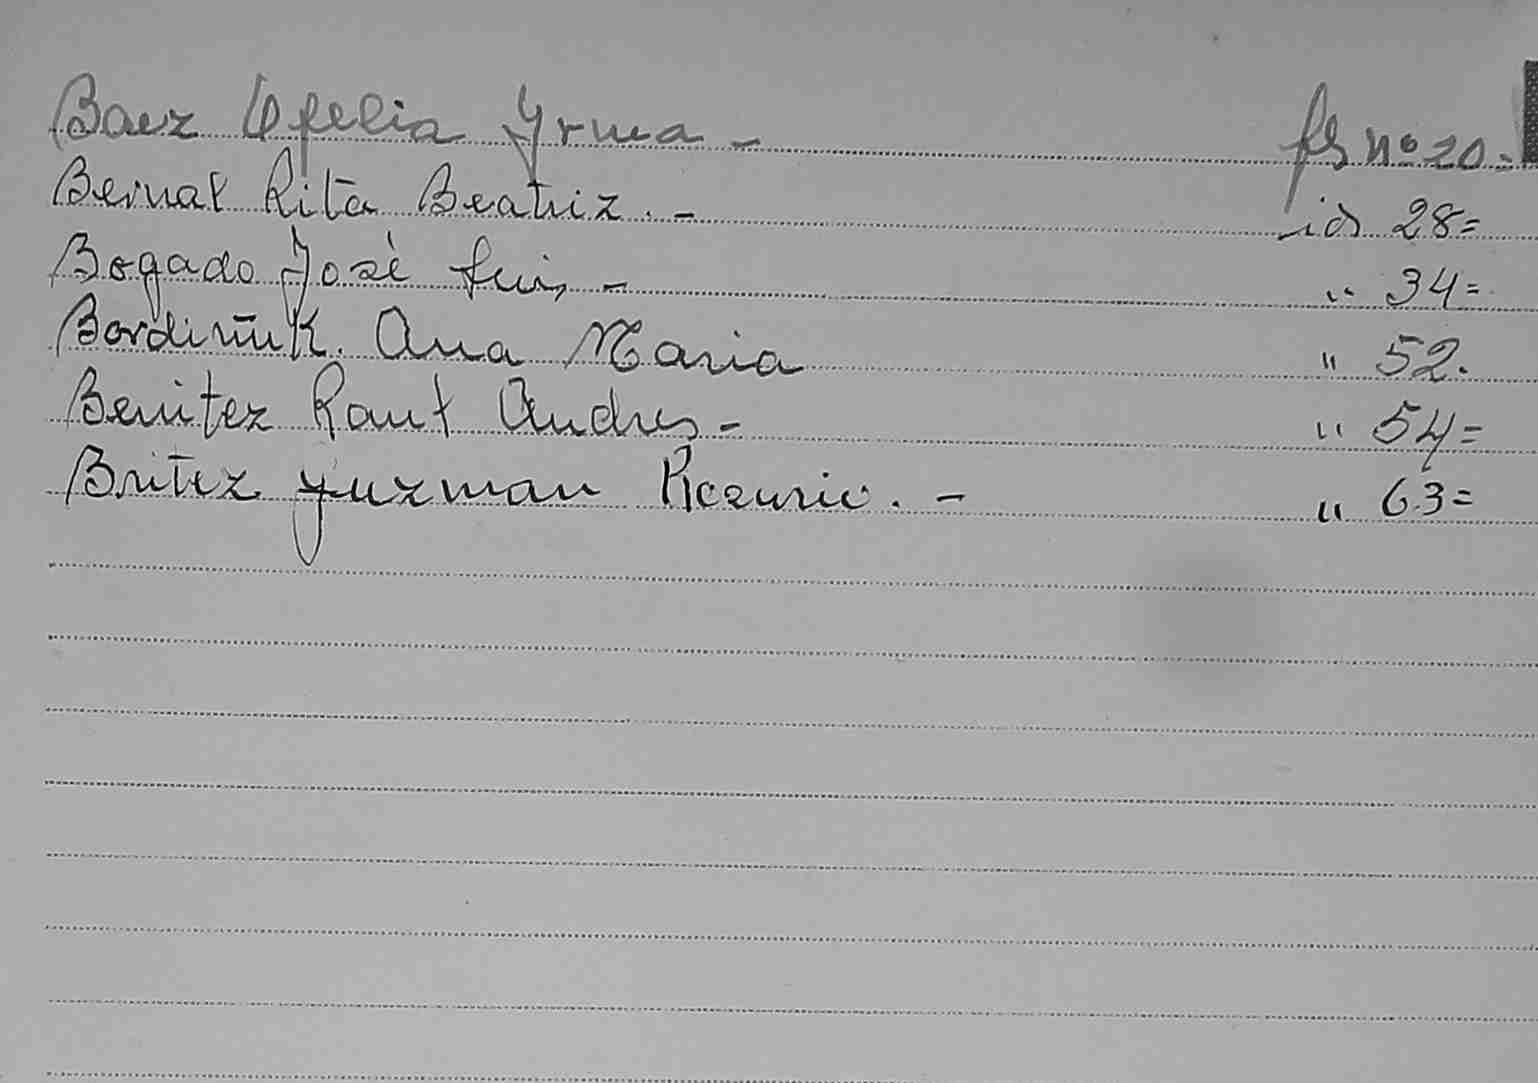 Baez Ofelia Yrma - fs nº 20.-
Bernal Rita Beatriz. - id 28=
Bogado José Luis - " 34=
Ana Maria " 52.
Benitez Raul Andres - " 54=
Britez Guzman . - " 63=